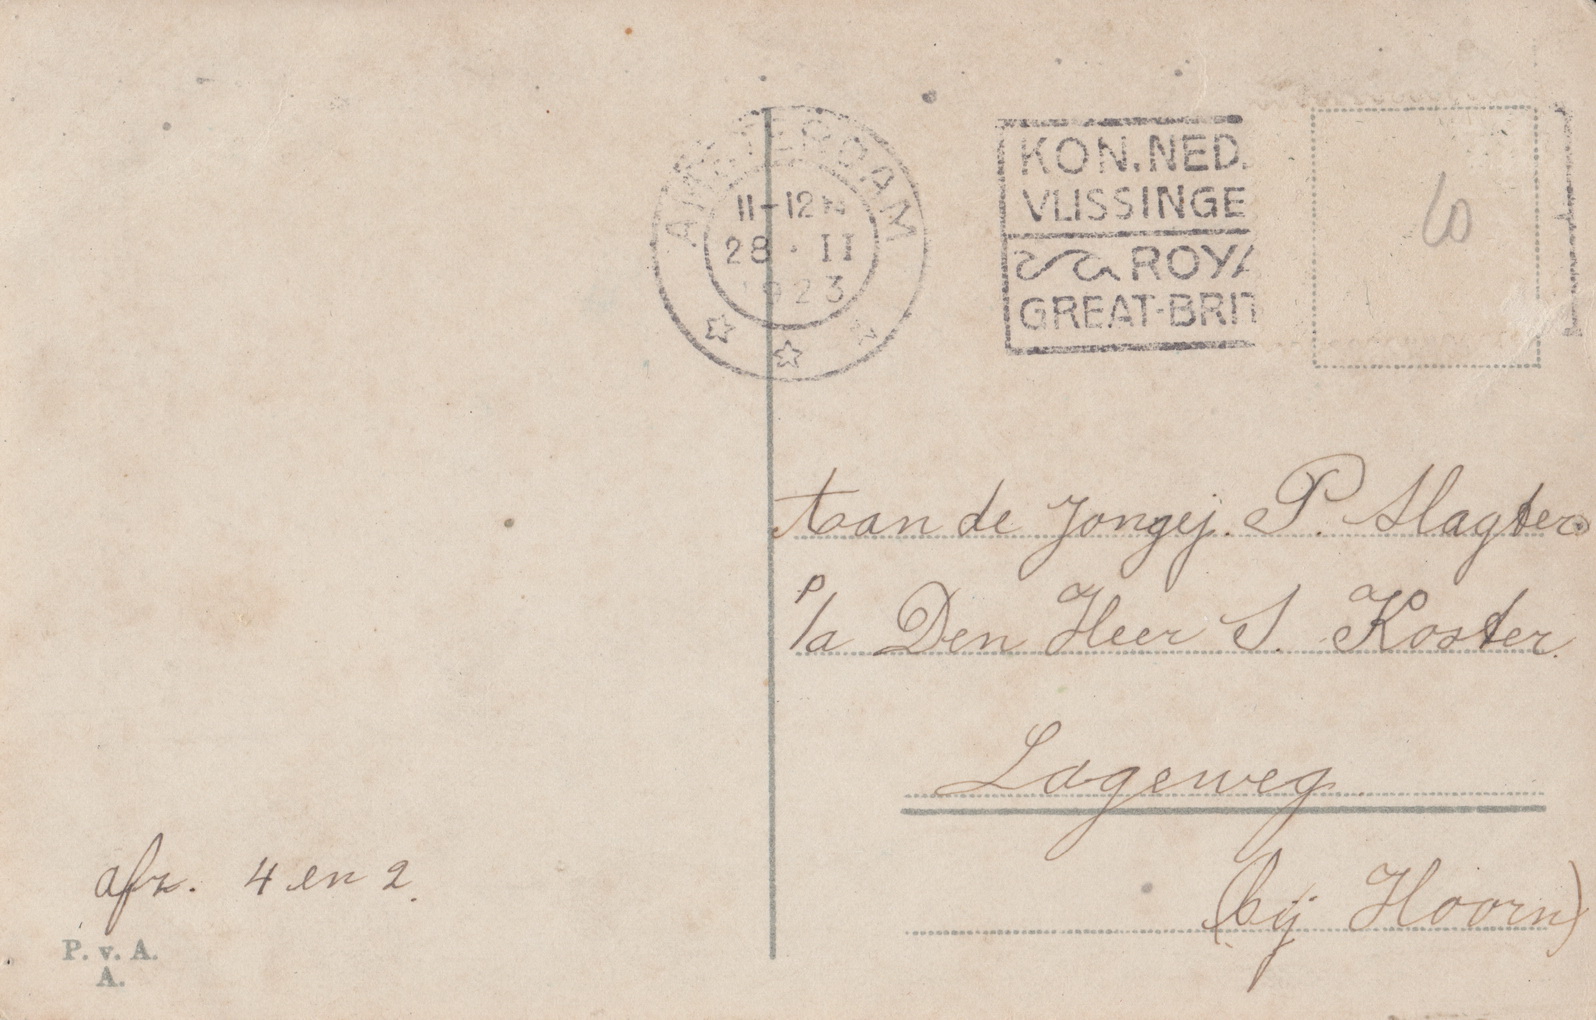 AMSTERDAM
11-12 N
28 · II
1923
KON. NED.
VLISSINGE
ROYA
GREAT-BRIT
Aan de Jongej. P. Slagter
p/a Den Heer S. Koster.
Lageweg
(bij Hoorn)
afz. 4 en 2.
P. v. A.
A.